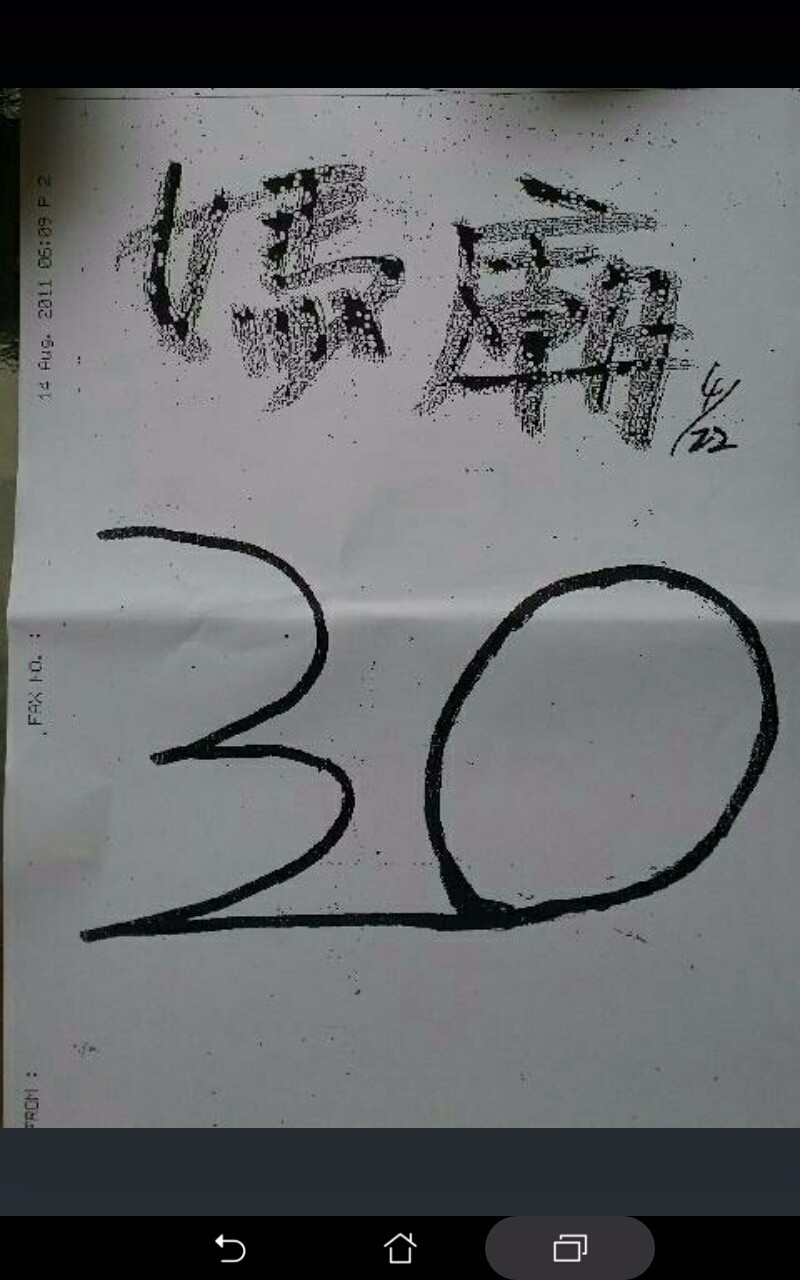 FROM : FAX NO. : 14 Aug. 2011 06:09 P 2
媽廟
4/22
30